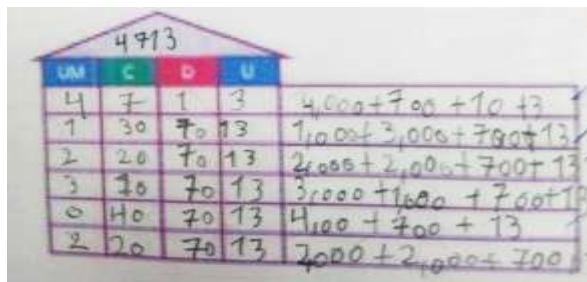 4713
UM C D U
4 7 1 3 4,000+700+10+3
1 30 70 13 1,000+3,000+700+13
2 20 70 13 2,000+2,000+700+13
3 10 70 13 3,000+1,000+700+1
0 40 70 13 4,00+700+13
2 20 70 13 2,000+2,000+700